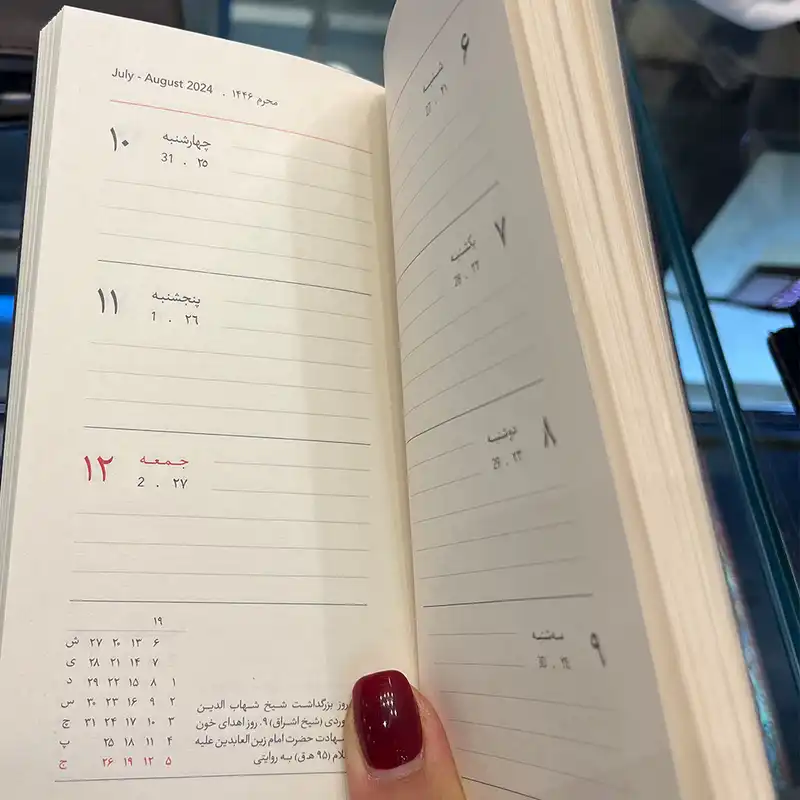 ۶ شنبه
27 . ۲۱
۷ یکشنبه
28 . ۲۲
۸ دوشنبه
29 . ۲۳
۹ سه‌شنبه
30 . ۲۴
July - August 2024 . محرم ۱۴۴۶
۱۰ چهارشنبه
31 . ۲۵
۱۱ پنجشنبه
1 . ۲۶
۱۲ جـمـعـه
2 . ۲۷
روز بزرگداشت شیخ شهاب الدین
وردی (شیخ اشراق) ۹. روز اهدای خون
حضرت امام زین العابدین علیه
(۹۵ ه.ق) به روایتی
۱۹
۶ ۱۳ ۲۰ ۲۷ ش
۷ ۱۴ ۲۱ ۲۸ ی
۱ ۸ ۱۵ ۲۲ ۲۹ د
۲ ۹ ۱۶ ۲۳ ۳۰ س
۳ ۱۰ ۱۷ ۲۴ ۳۱ چ
۴ ۱۱ ۱۸ ۲۵ پ
۵ ۱۲ ۱۹ ۲۶ ج